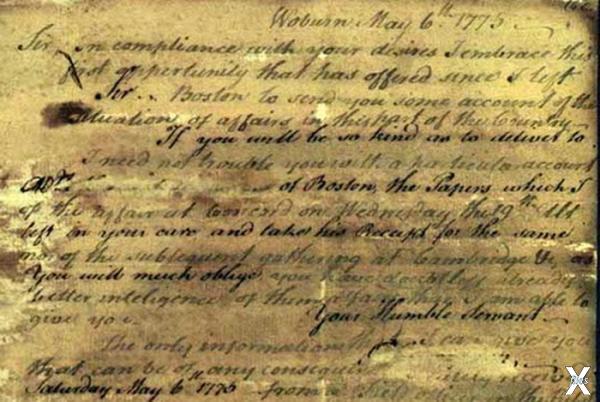 Woburn May 6th 1775
Sir, in compliance with your desires I embrace this
first opportunity that has offered since I left
Sir Boston to send you some account of the
situation of affairs in this part of the Country
If you will be so kind as to deliver to
I need not trouble you with a particular account
of Boston, the Papers which I
of the affair at Concord on Wednesday the 19th Ult
left in your care and take his Receipt for the same
nor of the subsequent gathering at Cambridge &c, as
You will much oblige you have doubtless already
better inteligence of them than I am able to
give you.
Your Humble Servant
The only information that I can give you
that can be of any consequence
Saturday May 6th 1775 from
X